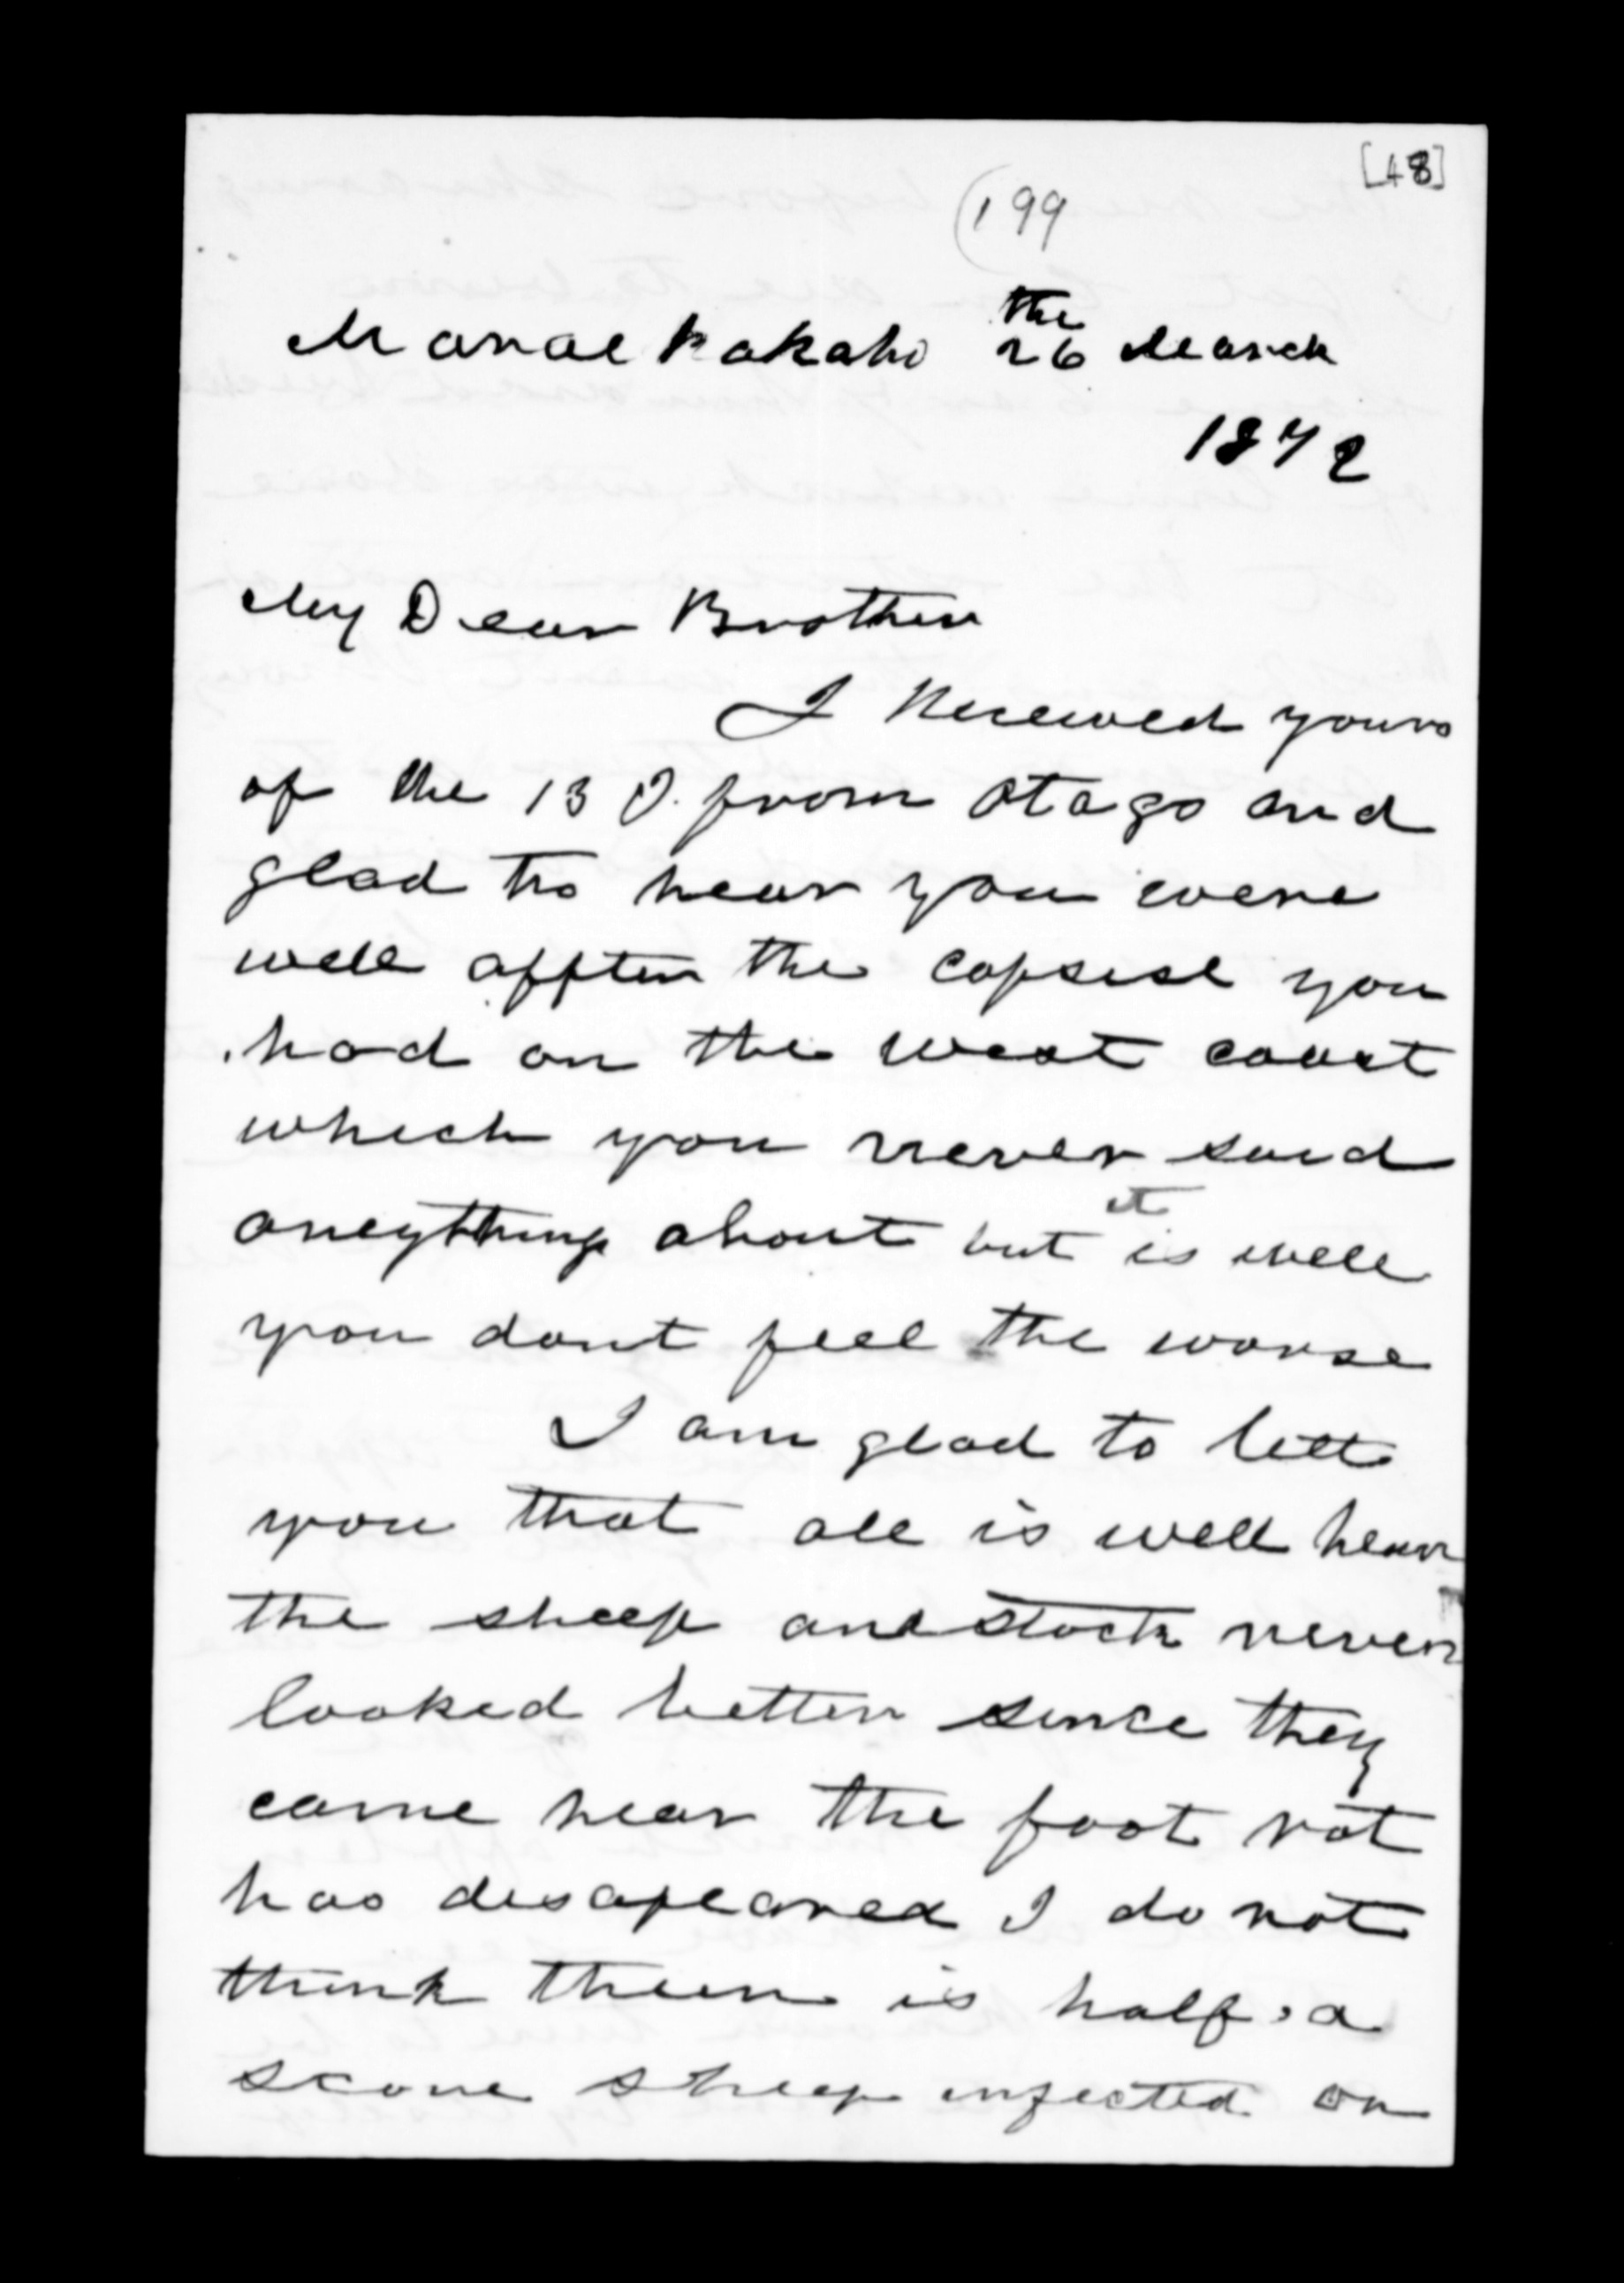 [48]
199
Maraekakaho the 26 March
1872
My Dear Brother
I Received yours
of the 13 from Otago and
glad to hear you were
well affter the capsise you
had on the west coast
which you never said
aneything about but it is well
you dont feel the worse
I am glad to lett
you that all is well hear
the sheep and stock never
looked better since they
came hear the foot rot
has disapeared I do not
think theer is half a
score sheep infected on